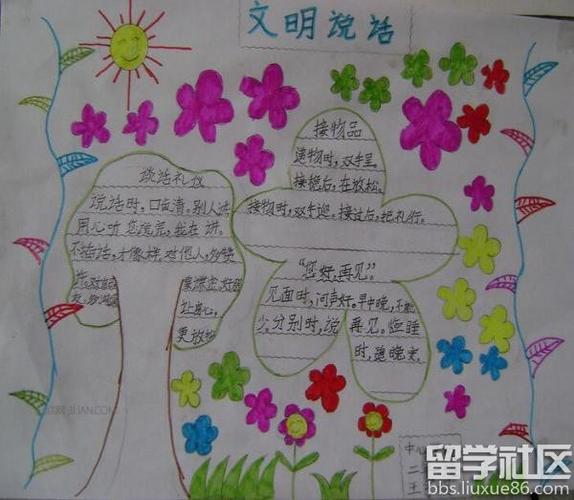 文明说话
谈话礼仪
说话时,口齿清。别人讲
用心听您说完,我在讲。
不插话,才像样。对他人,多赞
接物品
递物时,双手呈。
接稳后,在放松。
接物时,双手迎。接过后,把礼行。
“您好,再见”。
见面时,问声好。早中晚,不能
少。分别时,说再见。临睡
时,道晚安。
中
二
王
留学社区
bbs.liuxue86.com